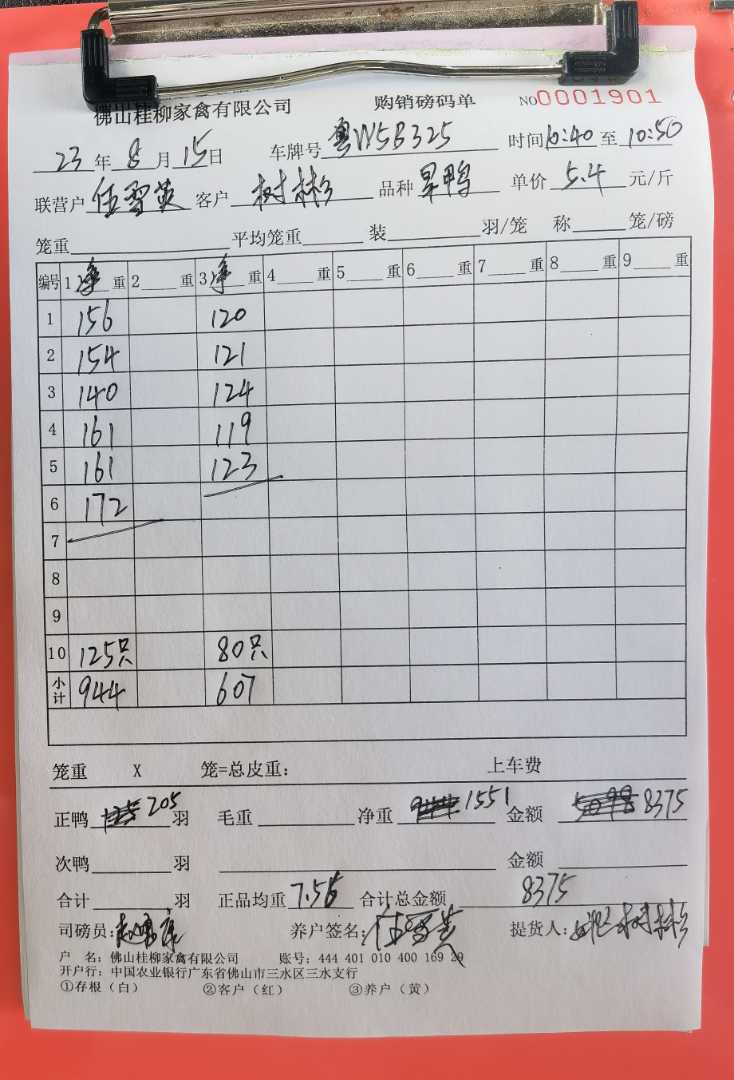 佛山桂柳家禽有限公司 购销磅码单 NO0001901
23 年 8 月 15 日 车牌号 粤W5B325 时间 10:40 至 10:50
联营户 伍雪英 客户 树彬 品种 旱鸭 单价 5.4 元/斤
笼重 平均笼重 装 羽/笼 称 笼/磅
编号 1 净 重 2 重 3 净 重 4 重 5 重 6 重 7 重 8 重 9 重
1 156 120
2 154 121
3 140 124
4 161 119
5 161 123
6 172
7
8
9
10 125只 80只
小计 944 607
笼重 X 笼=总皮重： 上车费
正鸭 205 羽 毛重 净重 1551 金额 8375
次鸭 羽 金额
合计 羽 正品均重 7.56 合计总金额 8375
司磅员： 养户签名： 伍雪英 提货人： 树彬
户 名：佛山桂柳家禽有限公司 账号：444 401 010 400 169 29
开户行：中国农业银行广东省佛山市三水区三水支行
①存根（白） ②客户（红） ③养户（黄）